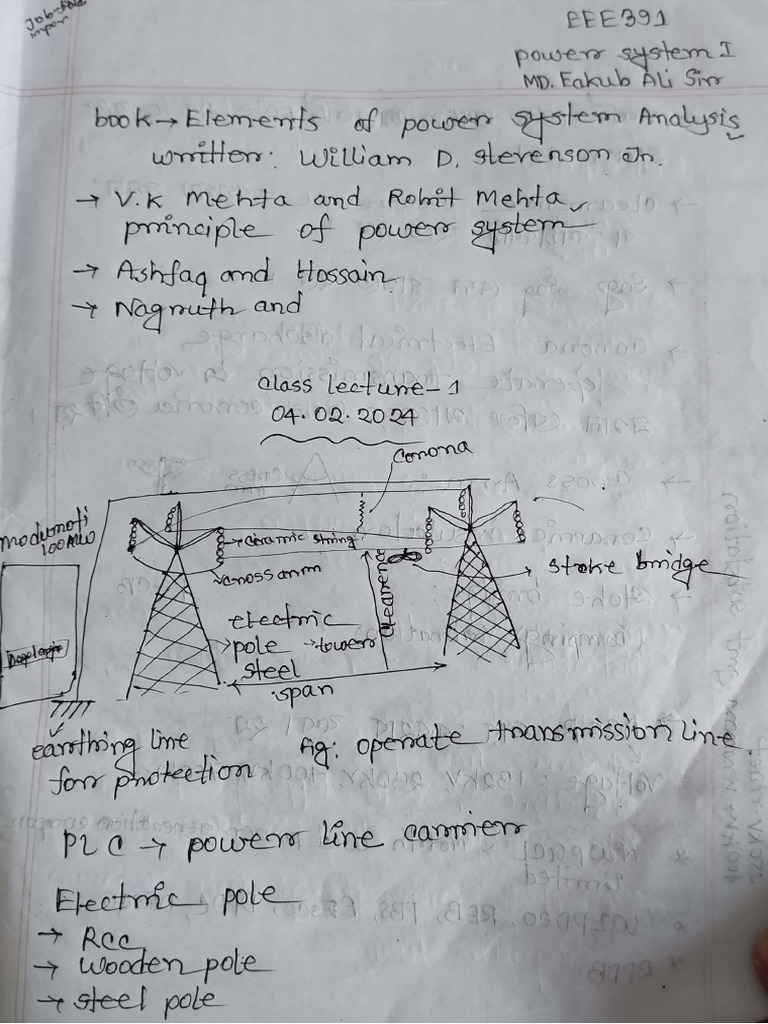 EEE391
power system I
MD. Eakub Ali Sir
book → Elements of power system Analysis
written: William D. Stevenson Jr.
→ V.K Mehta and Rohit Mehta
principle of power system
→ Ashfaq and Hossain
→ Nagruth and
class lecture-1
04.02.2024
Corona
Modumoti
100MW
→ ceramic string
cross arm
clearence
stoke bridge
electric
pole → tower
steel
span
earthing line
for protection
fig: operate transmission line.
PLC → power line carrier
Electric pole
→ RCC
→ wooden pole
→ steel pole